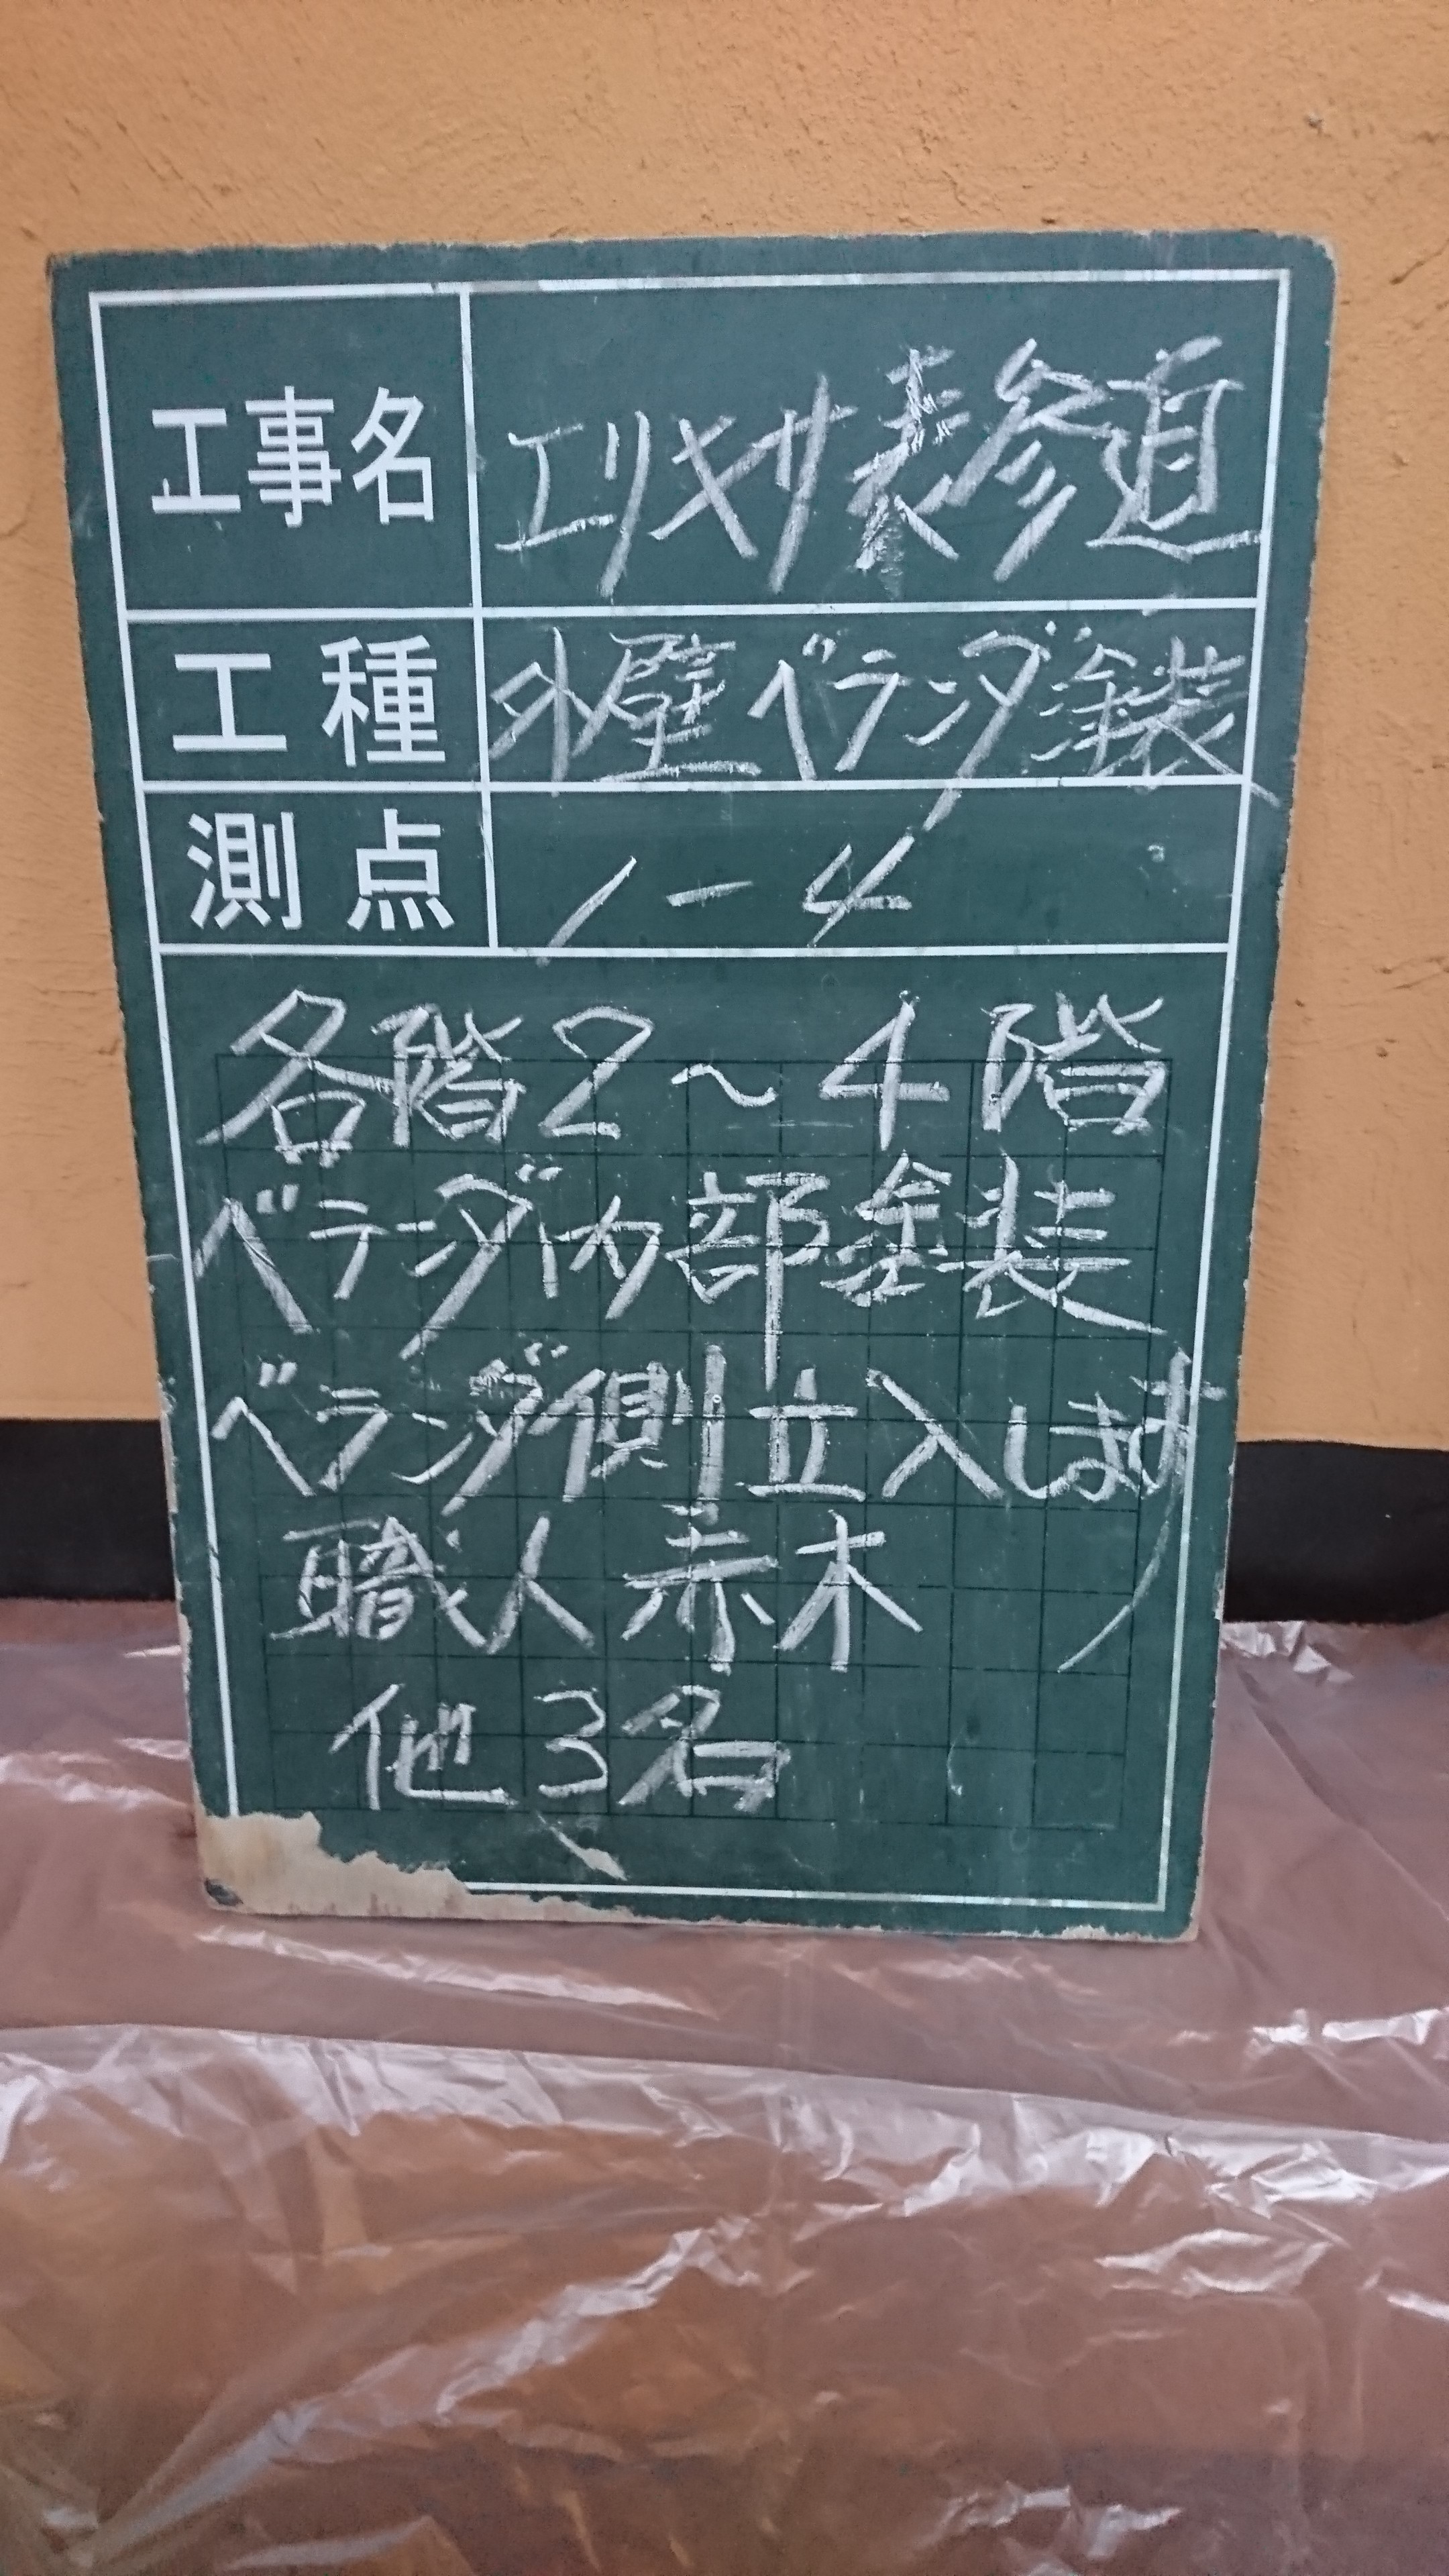 工事名 エリキサ表参道
工種 外壁ベランダ塗装
測点 1-4
各階2〜4階
ベランダ内部塗装
ベランダ側立入します
職人赤木
他3名